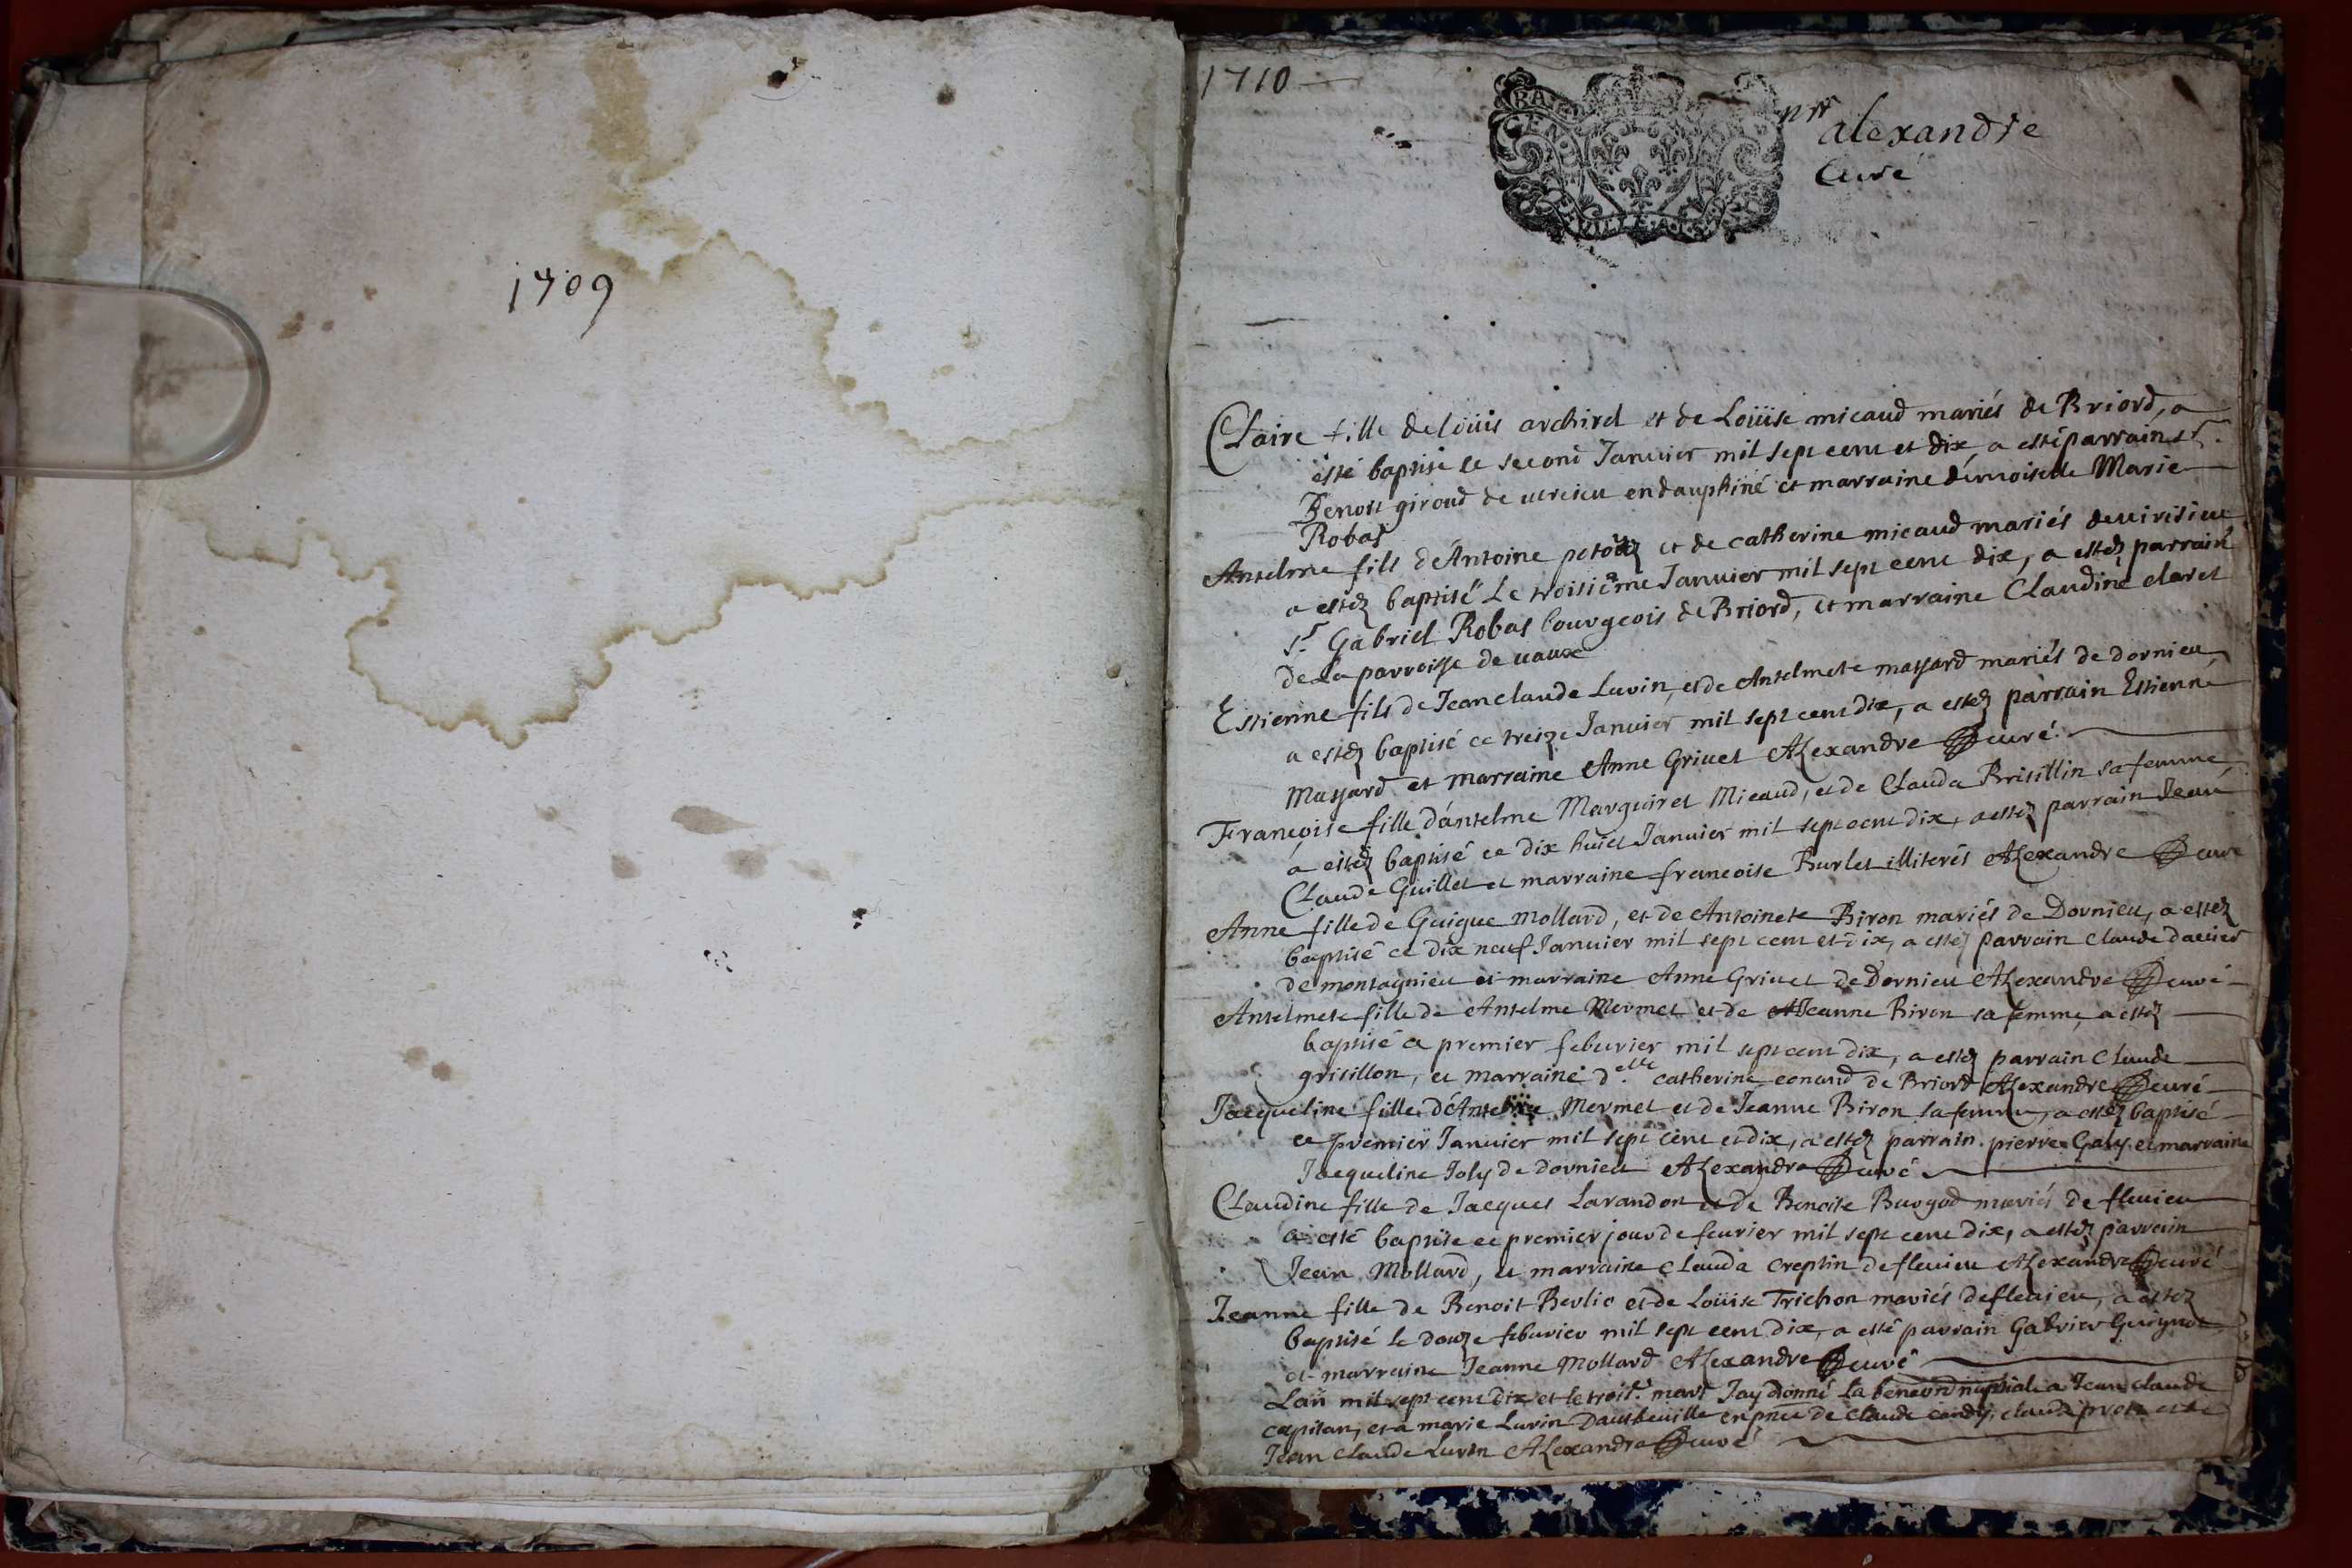 1709
1710
alexandre
Curé
GEN
Claire fille de loüis archirel et de Loüise micaud mariés de Briord, a
esté baptise le second Januier mil sept cent et dix, a esté parrain sr.
Benoit giroud de en dauphiné et marraine démoiselle Marie
Robas
Anselme fils d'Antoine et de catherine micaud mariés de uirisieu
a estez baptisé Le troisiême Januier mil sept cent dix, a estez parrain
sr. Gabriel Robas bourgeois de Briord, et marraine Claudine claret
de La parroisse de uaux
Estienne fils de Jean claude Luvin, et de Antelmete massard mariés de dornieu,
a estez baptisé ce treize Januier mil sept cent dix, a estez parrain Estienne
Massard et marraine Anne Griuet Alexandre curé.
Françoise fille d'antelme Marguiret Micaud, et de Clauda Brisillin sa femme,
a estez baptisé ce dix huict Januier mil sept cent dix, a estez parrain Jean
Claude Guillet et marraine francoise Burlet illiterés Alexandre curé
Anne fille de Guigue Mollard, et de Antoinete Biron mariés de Dornieu, a estez
baptisé ce dix neuf Januier mil sept cent et dix, a estez parrain Claude dacier
de montagnieu et marraine Anne Griuet de Dornieu Alexandre curé
Antelmete fille de Antelme Mermet et de Jeanne Biron sa femme, a estez
baptisé ce premier feburier mil sept cent dix, a estez parrain Claude
grisillon, et marraine delle catherine conand de Briord Alexandre curé
Jacqueline fille d'Antelme Mermet et de Jeanne Biron sa femme, a estez baptisé
ce premier Januier mil sept cent et dix, a estez parrain pierre Galy et marraine
Jacqueline Joly de dornieu Alexandre curé
Claudine fille de Jacques Larandon et de Benoite Burgod mariés de fleuieu
a esté baptise ce premier jour de feurier mil sept cent dix, a estez parrain
Jean Mollard, et marraine Clauda Creptin de fleuieu Alexandre curé
Jeanne fille de Benoit Berlio et de Loüise Trichon mariés de fleuieu, a estez
baptisé le douze feburier mil sept cent dix, a esté parrain Gabrier Guignot
et marraine Jeanne Mollard Alexandre curé
L'an mil sept cent dix et le trois.e mars J'ay donné la benedon nuptiale a Jean claude
capitan, et a marie Luvin en pnce de Claude claude et de
Jean Claude Luvin Alexandre curé